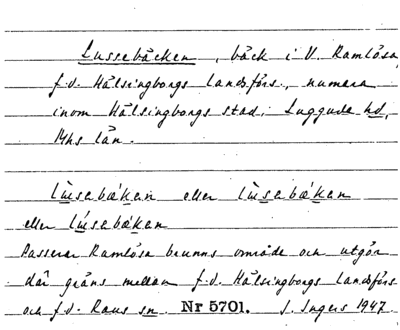 Lussebäcken, bäck i V. Ramlösa,
f.d. Hälsingborgs landsförs., numera
inom Hälsingborgs stad; Luggude hd,
Mhs län.
lùsebäkan eller lùsebäkan
eller lùsebäkan
Passerar Ramlösa brunns område och utgör
där gräns mellan f.d. Hälsingborgs landsförs
och f.d. Raus sn. Nr 5701. J. Ingers 1947.